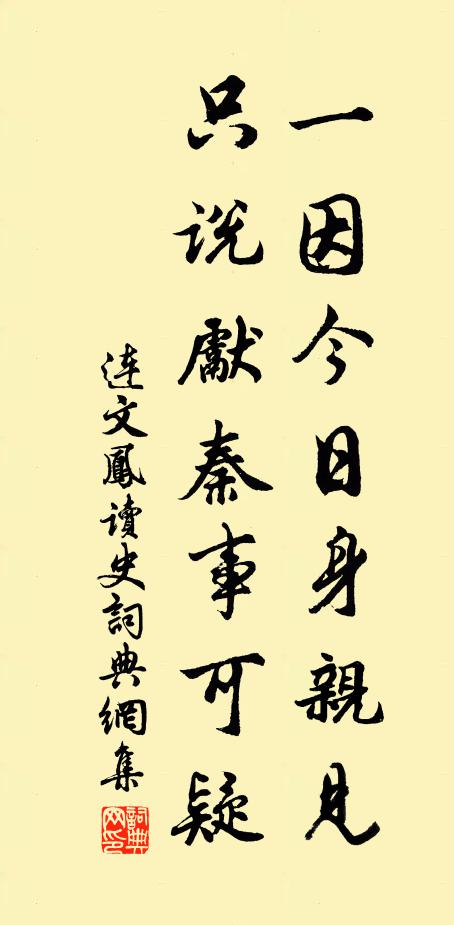 一因今日身親見
只説獻秦事可疑
連文鳳讀史詞典網集
詞典
网印